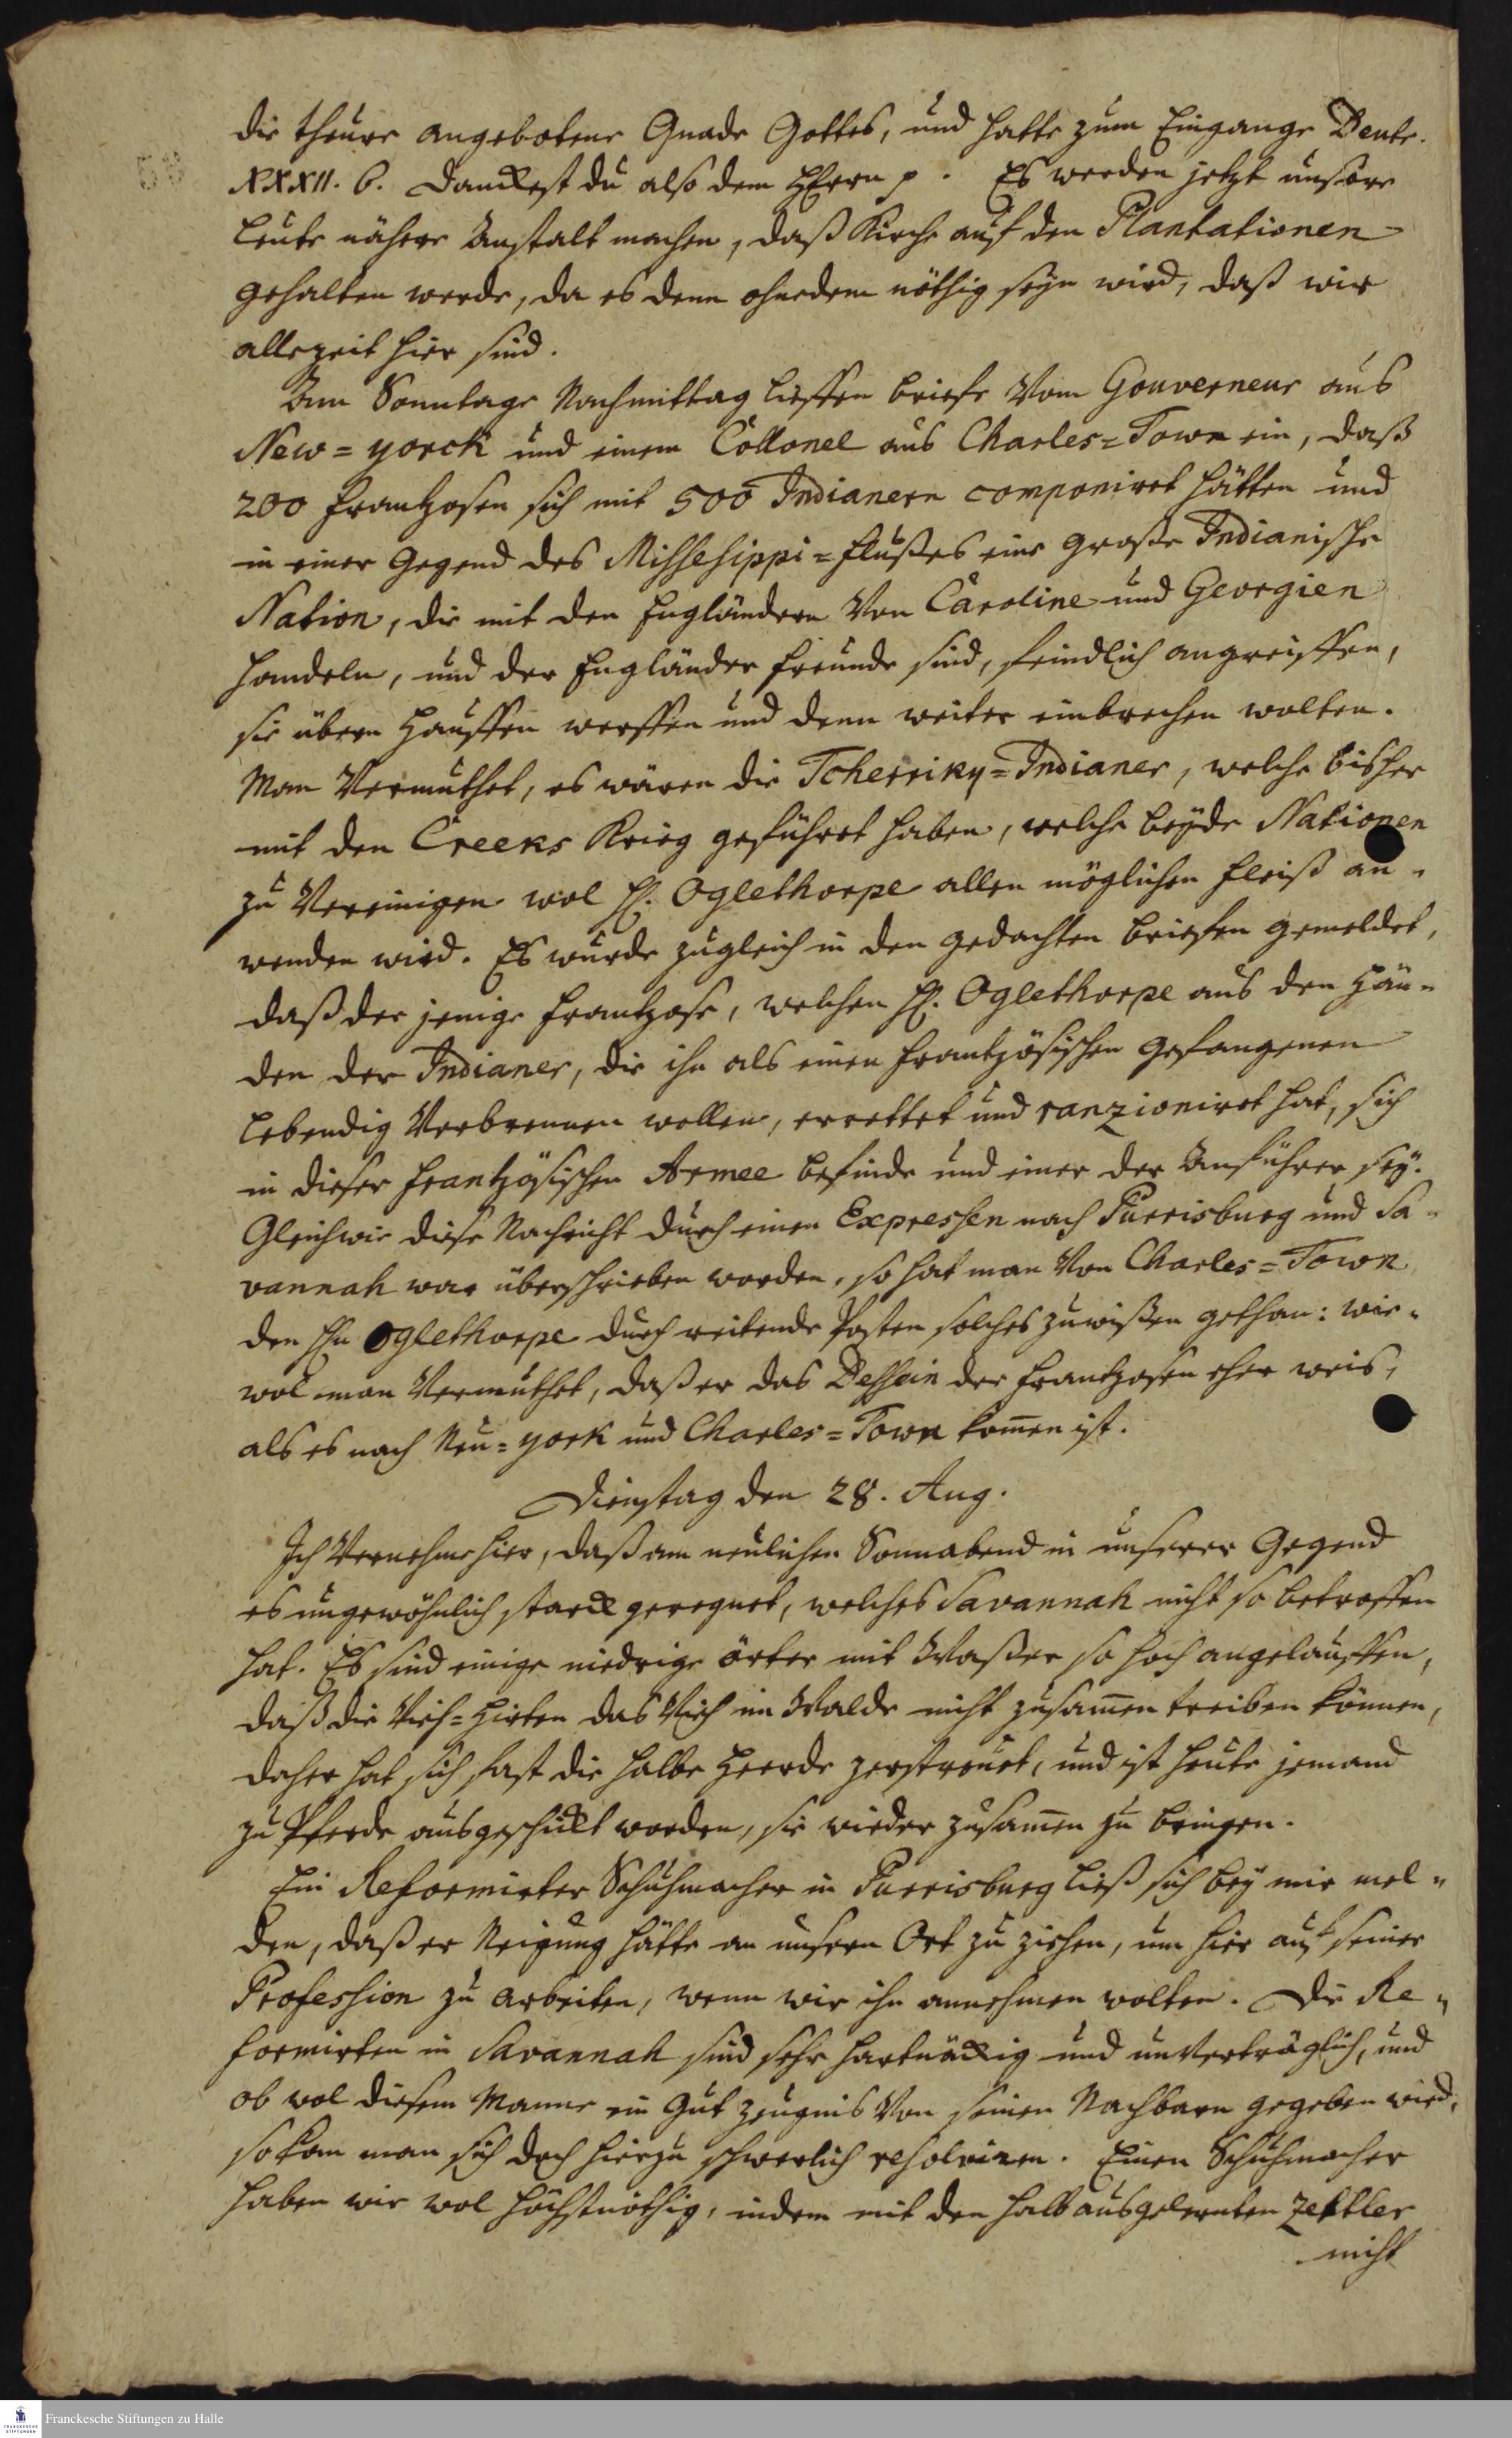 die theure angebotene Gnade Gottes, und hatte zum Eingange Deutr.
XXXII. 6. Danckest du also dem HErrn p. Es werden jetzt unsere
Leute nähere Anstalt machen, daß Kirche auf den Plantationen
gehalten werde, da es denn ohnedem nöthig seyn wird, daß wir
allezeit hier sind.
Am Sonntage Nachmittag lieffen briefe vom Gouverneur aus
New=yorck und einem Collonel aus Charles=Town ein, daß
200 Frantzosen sich mit 500 Indianern componiret hätten und
in einer Gegend des Missesippi=Flußes eine große Indianische
Nation, die mit den Engländern von Caroline und Georgien
handeln, und der Engländer Freunde sind, feindlich angreiffen,
sie übern Hauffen werffen und denn weiter einbrechen wolten.
Man vermuthet, es wären die Tcherriky=Indianer, welche bisher
mit den Creeks Krieg geführet haben, welche beyde Nationen
zu vereinigen wol H. Oglethorpe allen möglichen Fleiß an=
wenden wird. Es wurde zugleich in den gedachten briefen gemeldet,
daß der jenige Frantzose, welchen H. Oglethorpe aus den Hän=
den der Indianer, die ihn als einen Frantzösischen Gefangenen
lebendig verbrennen wollen, errettet und ranzioniret hat, sich
in dieser Frantzösischen Armee befinde und einer der Anführer sey.
Gleichwie diese Nachricht durch einen Expressen nach Purrisburg und Sa=
vannah war überschrieben worden, so hat man von Charles=Town
den Hn Oglethorpe durch reitende Posten solches zuwißen gethan: wie=
wol man vermuthet, daß er das Dessein der Frantzosen eher weis,
als es nach Neu=york und Charles=Town kom̅en ist.
Dienstag den 28. Aug.
Ich vernehme hier, daß am neulichen Sonnabend in unserer Gegend
es ungewöhnlich starck geregnet, welches Savannah nicht so betroffen
hat. Es sind einige niedrige örter mit Waßer so hoch angelauffen,
daß die Vieh=Hirten das Vieh im Walde nicht zusam̅en treiben können,
daher hat sich fast die halbe Heerde zerstreuet, und ist heute jemand
zu Pferde ausgeschickt worden, sie wieder zusam̅en zu bringen.
Ein Reformirter Schuhmacher in Purrisburg ließ sich bey mir mel=
den, daß er Neigung hätte an unsern Ort zu ziehen, um hier auf seiner
Profession zu arbeiten, wenn wir ihn annehmen wolten. Die Re=
formirten in Savannah sind sehr hartnäckig und unverträglich, und
ob wol diesem Manne ein gut Zeugnis von seinen Nachbarn gegeben wird,
so kan man sich doch hierzu schwerlich resolviren. Einen Schuhmacher
haben wir wol höchstnöthig, indem mit den halb ausgelernten Zettler
nicht
Franckesche Stiftungen zu Halle